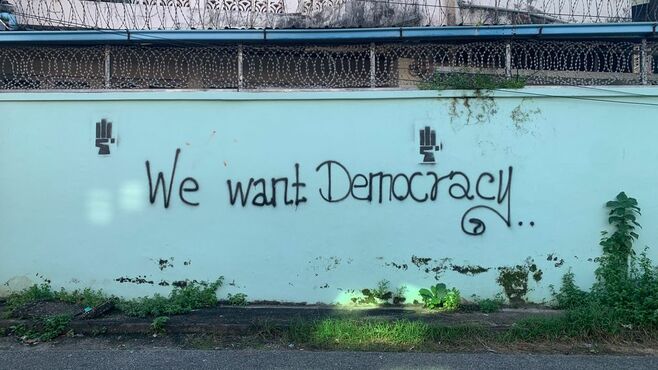 We want Democracy..